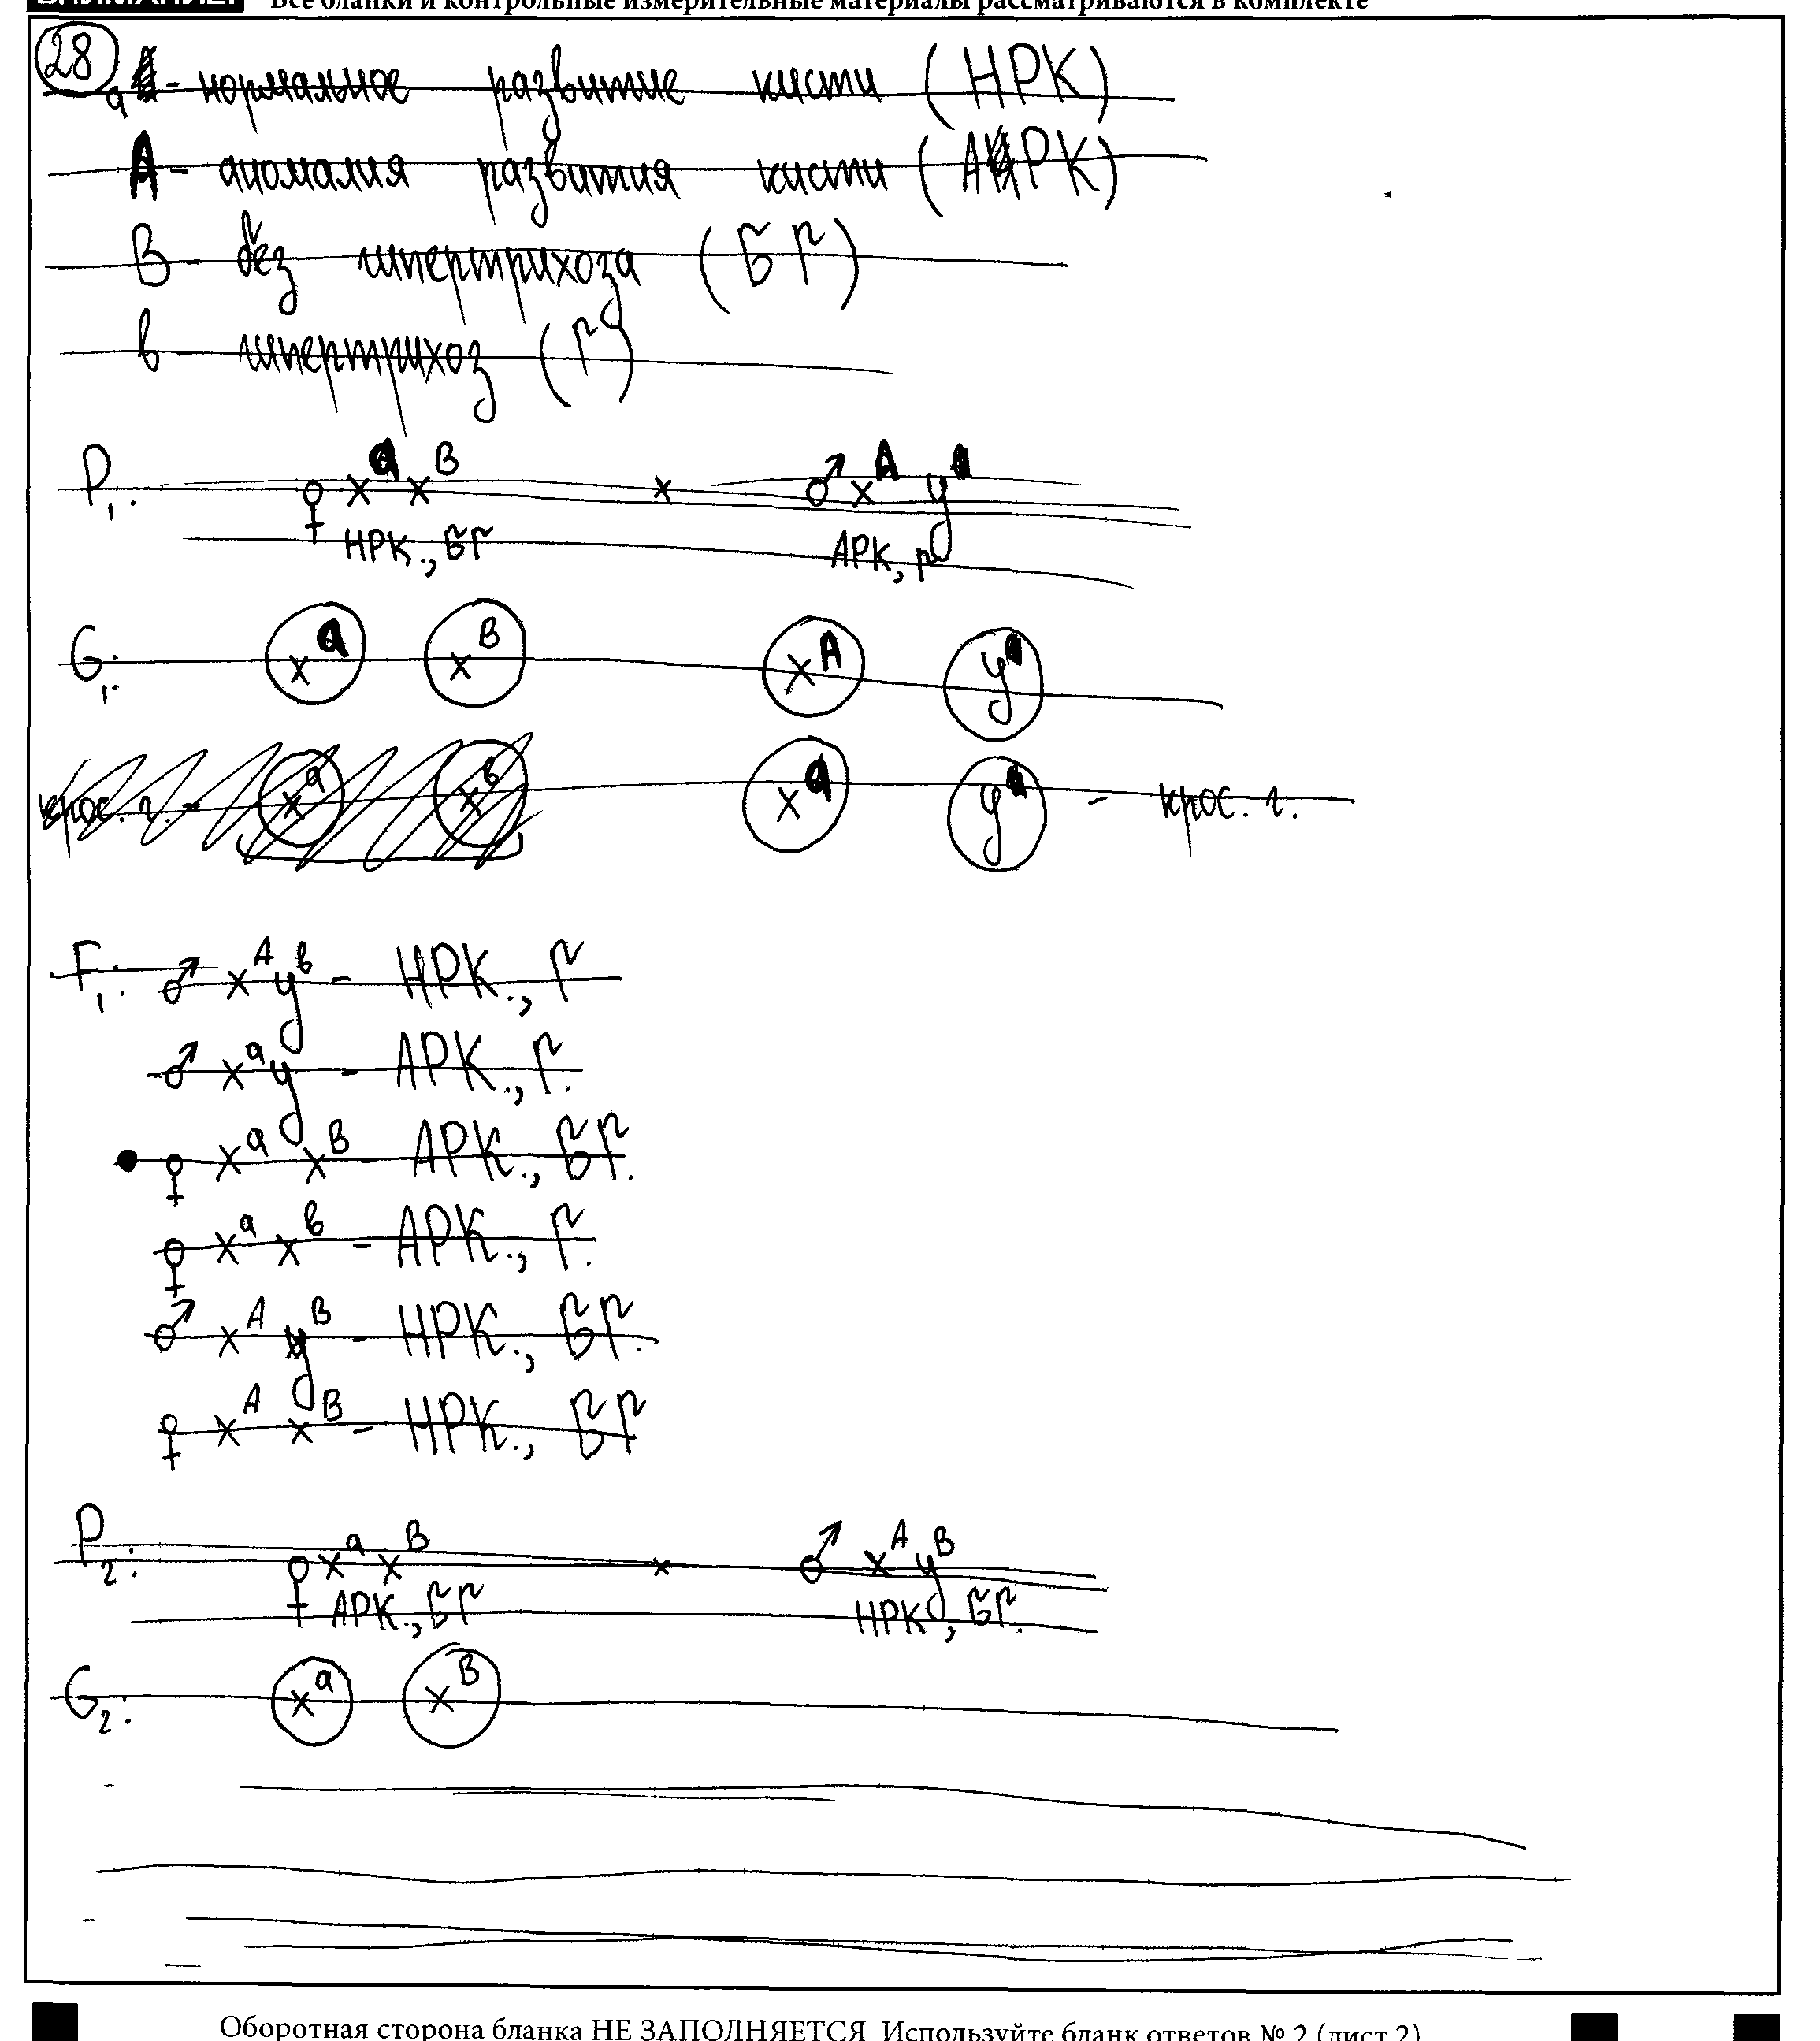 Все бланки и контрольные измерительные материалы рассматриваются в комплекте
28
a - нормальное развитие кисти (НРК)
A - аномалия развития кисти (АРК)
B - без гипертрихоза (БГ)
в - гипертрихоз (Г)
P₁: ♀ x^a x^B x ♂ x^A y
НРК., БГ АРК, Г
G₁: x^a x^B x^A y
x^a y - крос. г.
F₁: ♂ x^A y^в - НРК., Г
♂ x^a y - АРК., Г.
♀ x^a x^B - АРК., БГ.
♀ x^a x^в - АРК., Г.
♂ x^A y^B - НРК., БГ.
♀ x^A x^B - НРК., БГ
P₂: ♀ x^a x^B x ♂ x^A y^B
АРК., БГ НРК, БГ.
G₂: x^a x^B
Оборотная сторона бланка НЕ ЗАПОЛНЯЕТСЯ. Используйте бланк ответов № 2 (лист 2)